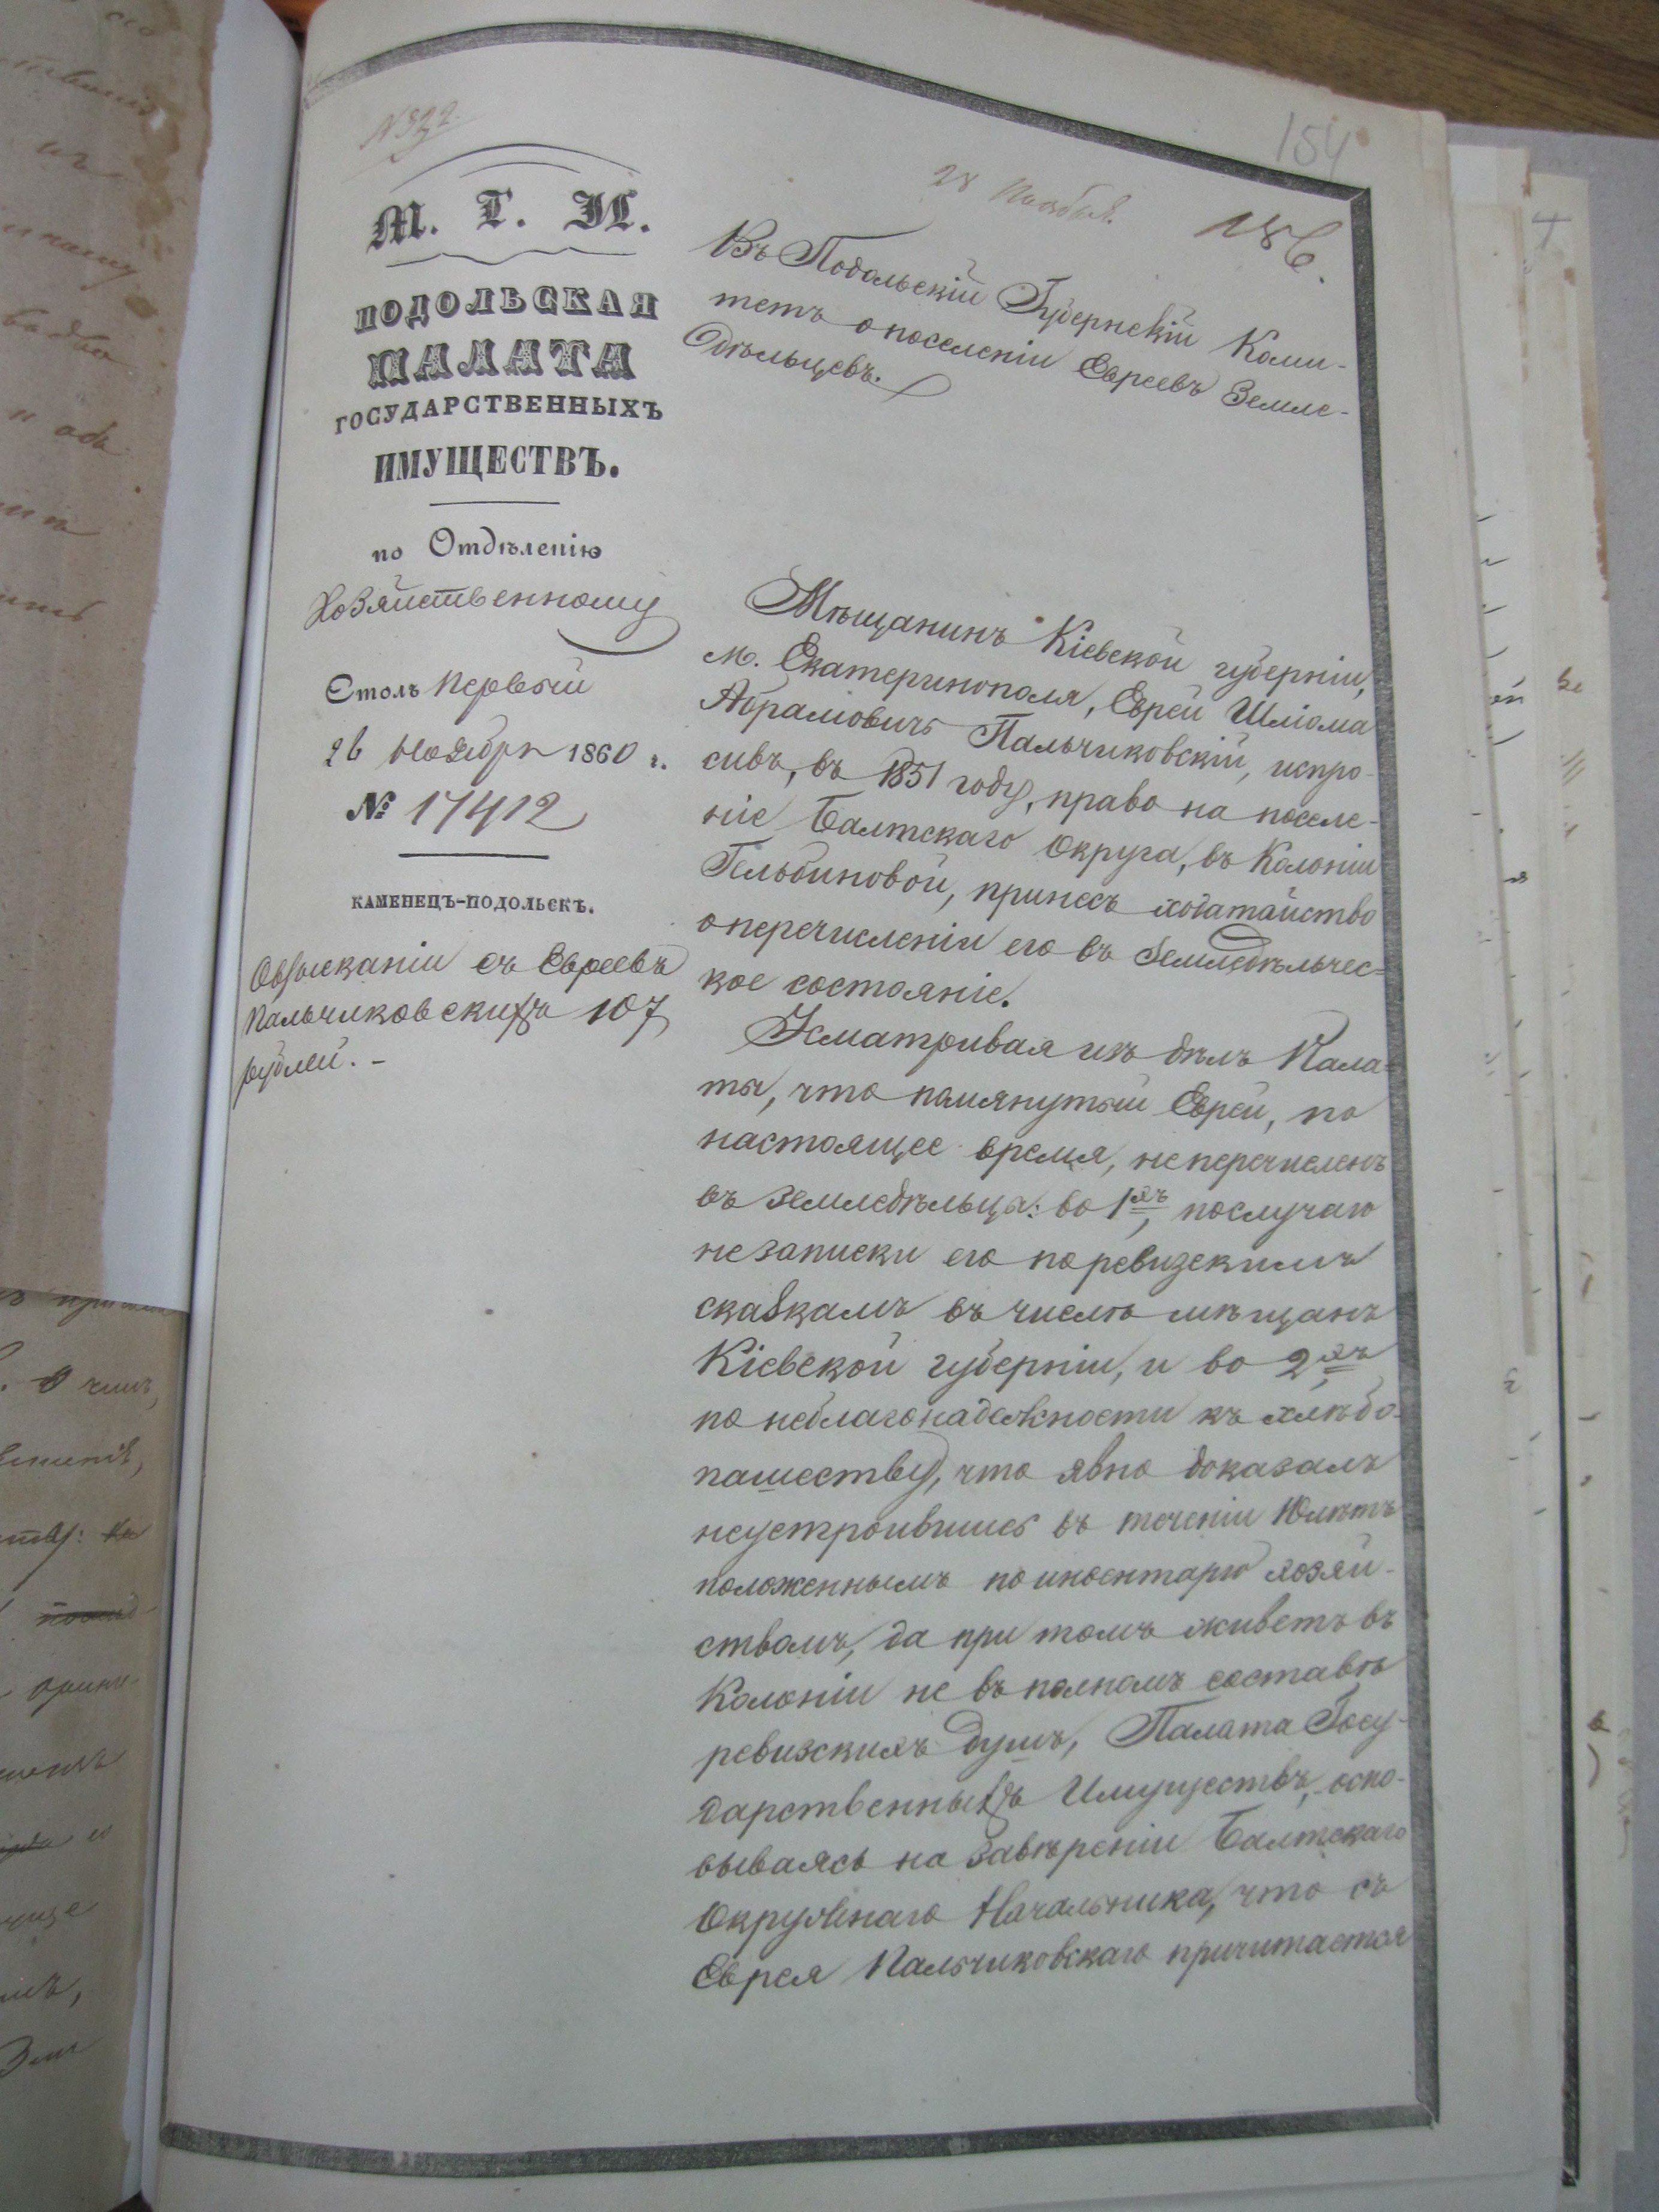 № 322.
154
28 Ноября.
186.
М. Г. И.
ПОДОЛЬСКАЯ
ПАЛАТА
ГОСУДАРСТВЕННЫХЪ
ИМУЩЕСТВЪ.
по Отдѣленію
Хозяйственному
Столъ первый
26 Ноября 1860 г.
№ 17412
КАМЕНЕЦЪ-ПОДОЛЬСКЪ.
О взысканіи съ Евреевъ
Пальчиковскихъ 107
рублей. -
Въ Подольскій Губернскій Коми-
тетъ о поселеніи Евреевъ Земле-
дѣльцевъ.
Мѣщанинъ Кіевской губерніи,
м. Екатеринополя, Еврей Шліома
Абрамовичъ Пальчиковскій, испро-
сивъ, въ 1851 году, право на поселе-
ніе Балтскаго Округа, въ Колоніи
Гельбиновой, принесъ ходатайство
о перечисленіи его въ Земледѣльчес-
кое состояніе.
Усматривая изъ дѣлъ Пала-
ты, что помянутый Еврей, по
настоящее время, не перечисленъ
въ земледѣльцы: во 1хъ, по случаю
не записки его по ревизскимъ
сказкамъ въ числѣ мѣщанъ
Кіевской губерніи, и во 2хъ,
по неблагонадежности къ хлѣбо-
пашеству, что явно доказалъ
неустроившись въ теченіи 10 лѣтъ
положеннымъ по инвентарю хозяй-
ствомъ, да при томъ живетъ въ
Колоніи не въ полномъ составѣ
ревизскихъ душъ, Палата Госу-
дарственныхъ Имуществъ, осно-
вываясь на завѣреніи Балтскаго
Окружнаго Начальника, что съ
Еврея Пальчиковскаго причитается